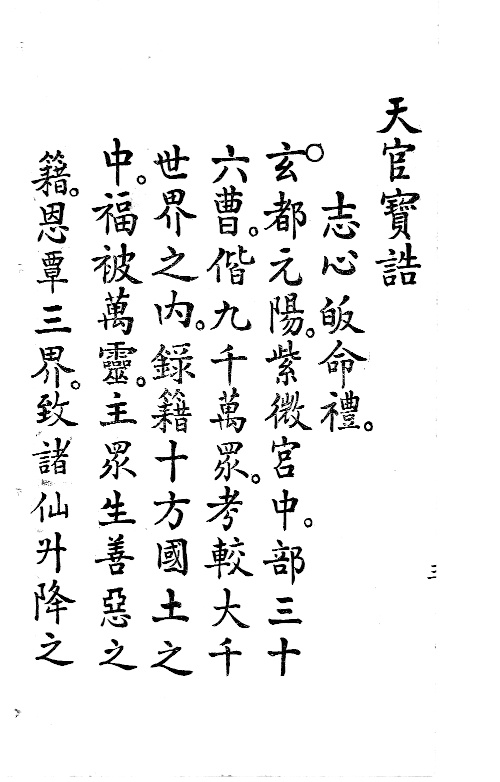 天官寶誥
志心皈命禮。
玄都元陽。紫微宮中。部三十
六曹。偕九千萬眾。考較大千
世界之内。錄籍十方國土之
中。福被萬靈。主眾生善惡之
籍。恩覃三界。致諸仙升降之
三